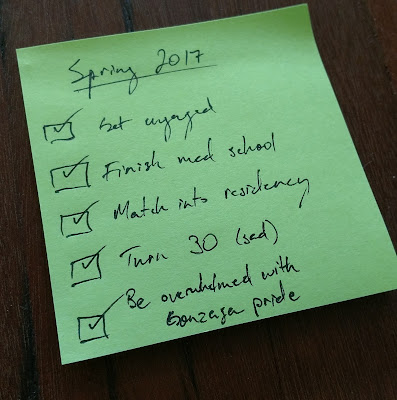 Spring 2017
Get engaged
Finish med school
Match into residency
Turn 30 (sad)
Be overwhelmed with
Gonzaga pride